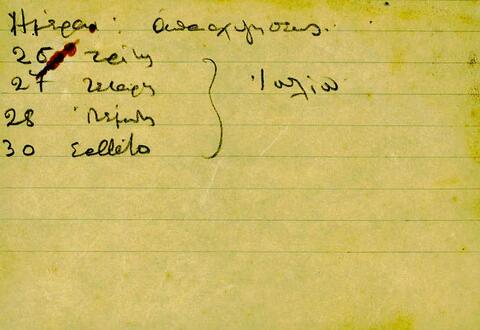 Ημέραι : απασχολήσεως.
26 Τρίτη
27 Τετάρτη Ιουλίου
28 Πέμπτη
30 Σάββατο